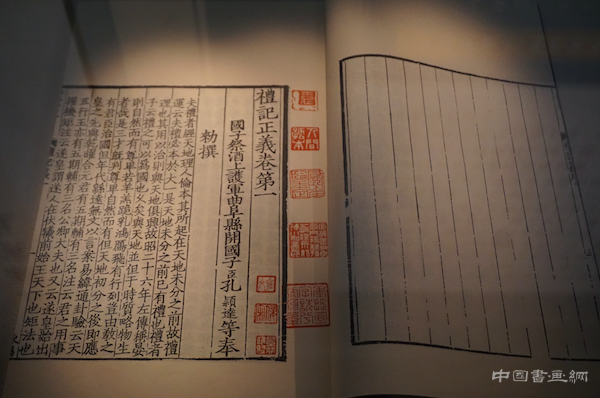 禮記正義卷第一
國子祭酒上護軍曲阜縣開國子臣孔穎達等奉
勑撰
夫禮者經天地理人倫本其所起在天地未分之前故禮
運云夫禮必本於大一是天地未分之前已有禮也禮者
理也其用以治則與天地俱興故昭二十六年左傳稱晏
子云禮之可以爲國也久矣與天地並但于時質略物生
則自然而有尊卑若羊羔跪乳鴻鴈飛有行列豈由教之
者哉是三才既判尊卑自然而有但天地初分之後即應
有君臣治國但年代緜遠無文以言案易緯通卦驗云天
皇之先與乾曜合元君有五期輔有三名注云君之用事
五行王亦有五期輔有三名公卿大夫也又云遂皇始出
握機矩注云遂皇謂遂人在伏犧前始王天下也矩法也
中国書画網